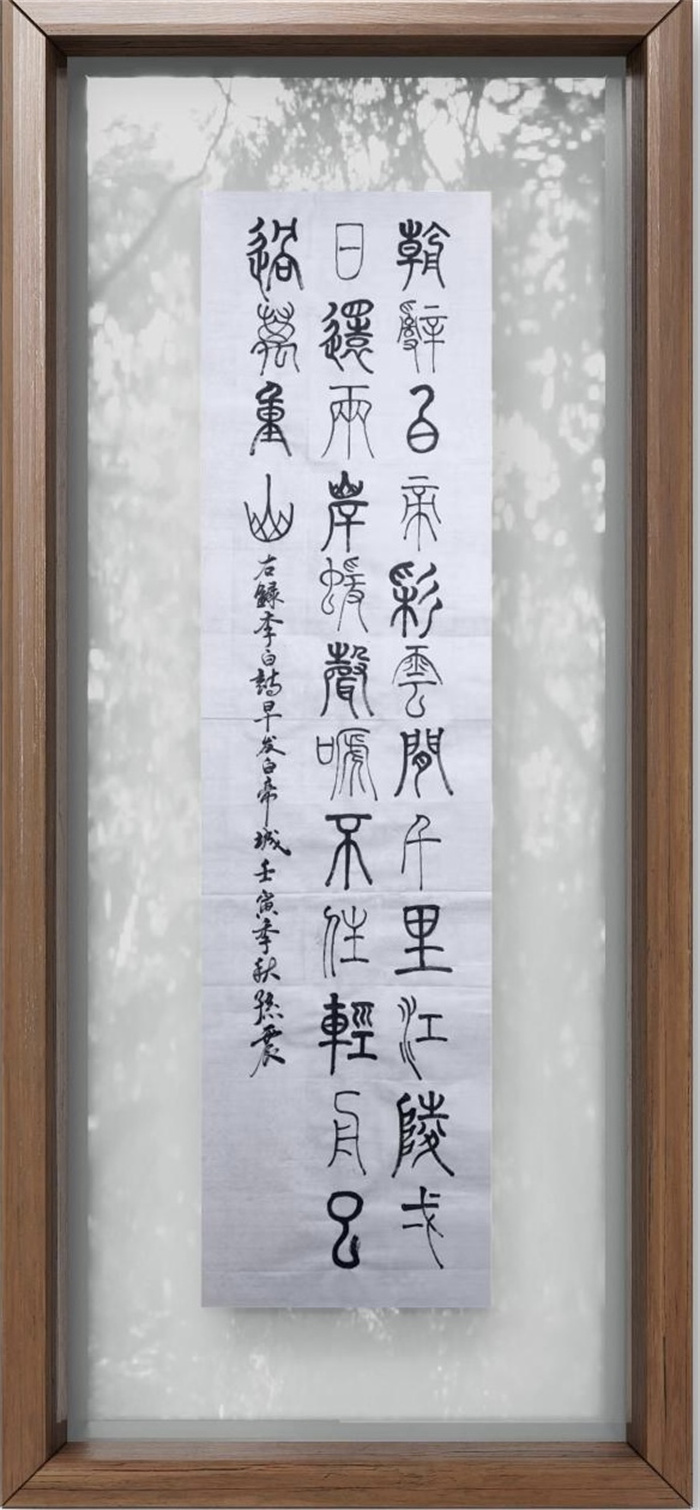 朝辭白帝彩雲間千里江陵弌
日還兩岸蝯聲嗁不住輕舟已
過萬重山
右錄李白詩早发白帝城壬寅季秋孫震